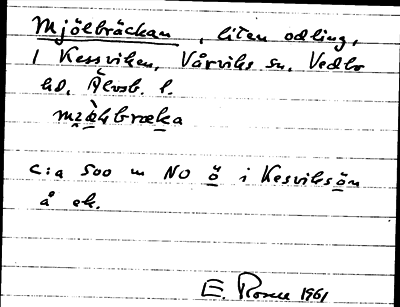 Mjölbräckan, liten odling,
i Kessviken, Vårviks sn, Vedbo
hd, Älvsb. l.
c:a 500 m NO ö i Kesviksön
å ek.
E. 1961